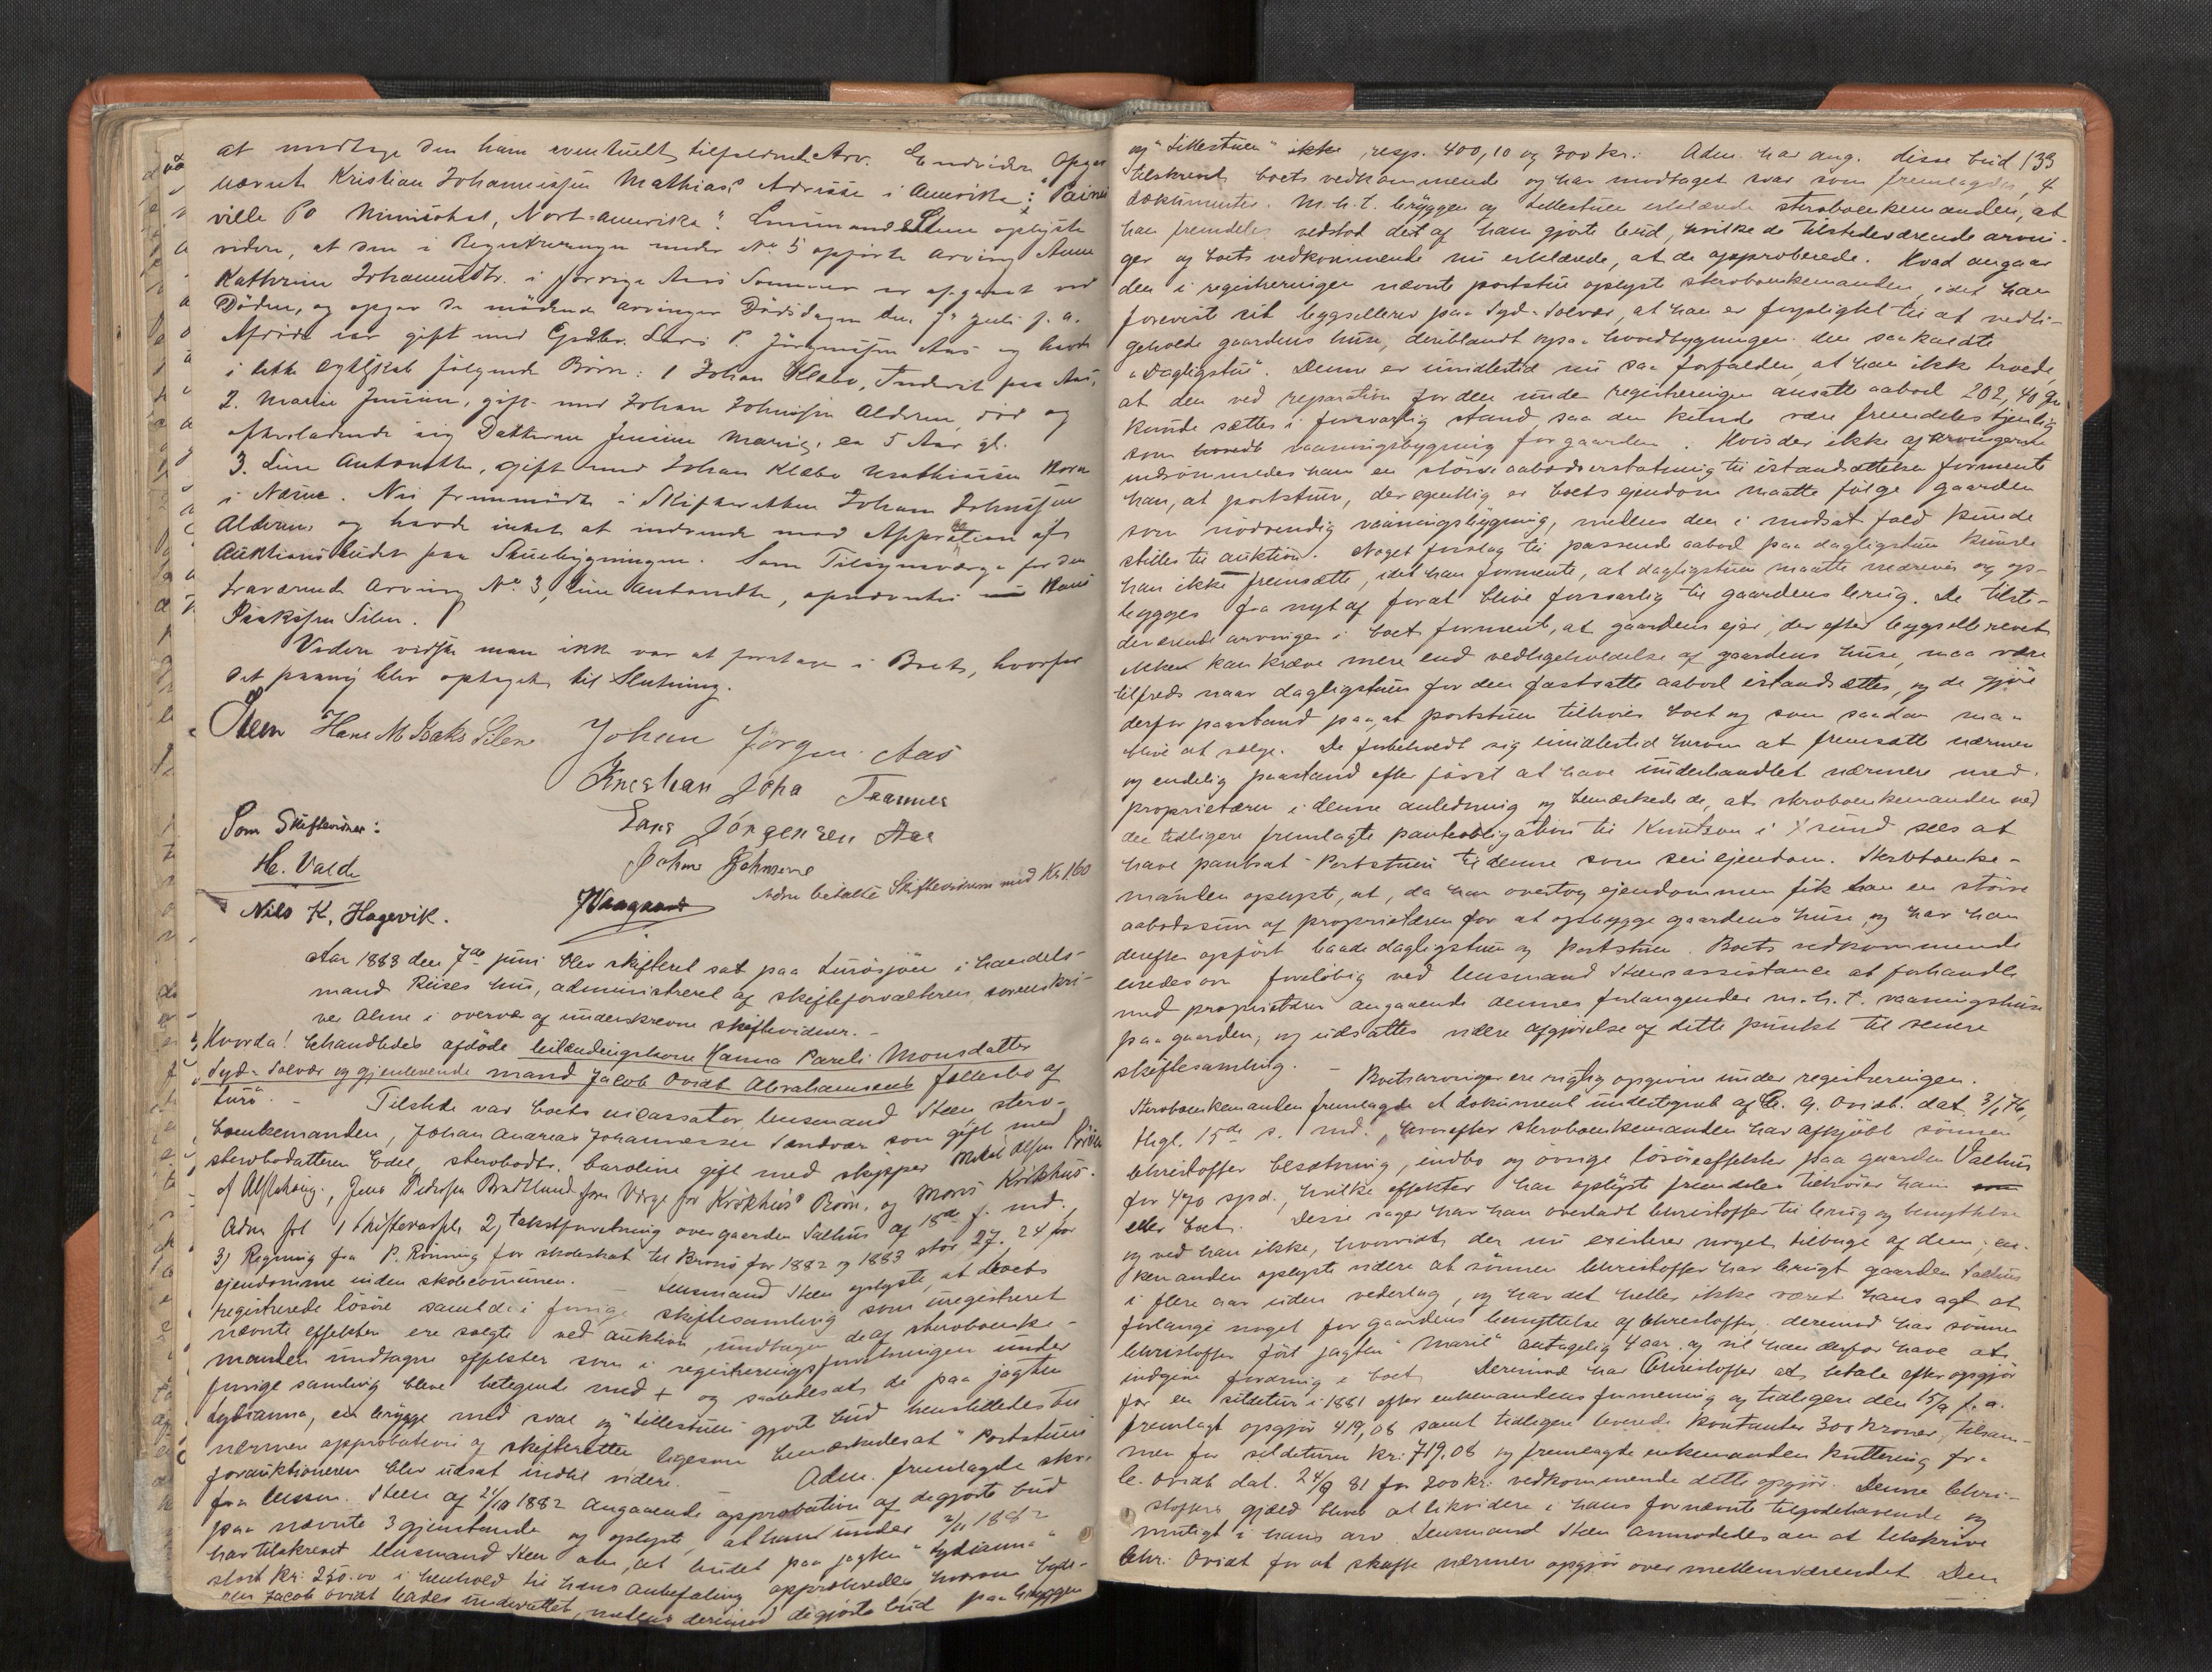 at modtage den ham eventuelt tilfaldende Arv. Endvidere opgav
nævnte Kristian Johannissen Mathias's Adresse i Amerika: "Paines
ville Po Minisohat, Nort-Amerika". Lensmand Steen oplyste
videre, at den i Registreringen under No 5 opførte Arving Anne
Kathrine Johannesdtr. i forrige Aars Sommer er afgaaet ved
Døden, og opgav de mødende Arvinger Dødsdagen den 7de Juli f. a.
Afdøde var gift med Gdbr. Lars P. Jørgensen Aas og havde
i dette Egteskab følgende Børn: 1 Johan Klæbo, Inderst paa Aas,
2. Marie Jensine, gift med Johan Johnsen Alderen, død og
efterladende sig Datteren Jensine Marie, ca 5 Aar gl.
3. Line Antonette, gift med Johan Klæbo Mathisen Horn
i Næsne. Nu fremmødte i Skifteretten Johan Johnsen
Alderen og havde intet at indvende mod Approbation af
Auktionsbudet paa Stuebygningen. Som Tilsynsværge for den
fraværende Arving No 3, Line Antonette, opnævntes Hans
Isaksen Silen.
Videre vidste man ikke var at foretage i Boet, hvorfor
det paany blev optaget til Slutning.
Steen Hans M Isaks Silen Johan Jørgen Aas
Kristian Joha Trannes
Som Skiftevidner: Lars Jörgensen Aas
H. Valde Johan Johnsen
Adm betalte Skiftevidnerne med Kr 1.60
Nils K. Hagevik.
Aar 1883 den 7de juni blev skifteret sat paa Lurøsjøen i handels-
mand Reises hus, administreret af skifteforvalteren, sorenskri-
ver Alme i overvær af underskrevne skiftevidner. -
Hvorda! behandledes afdøde leilændingskone Hanna Pareli Monsdatter
Syd-Solvær og gjenlevende mand Jacob Ovidt Abrahamsens fællesbo af
Lurø. - Tilstede var boets incassator, lensmand Steen, sterv-
boenkemanden, Johan Andreas Johannessen Sandvær som gift med
stervbodatteren Edel, stervbodtr. Caroline gift med skipper Mikal Olsen
af Alstahaug, Jens Pedersen Bratland som Værge for Krokhus Børn, og Mons Krokhus.
Adm fol 1 skiftevarsel 2) takstforretning over gaarden Valhus af 18de f. md.
3) Regning fra P. Rønning for skoleskat til Brønø for 1882 og 1883 stor 27.24 for
ejendomme inden skolecommunen. Lensmand Steen oplyste, at boets
registrerede løsøre samt de i forrige skiftesamling som uregistreret
nævnte effekter ere solgte ved auktion, undtagen de af stervboenke-
manden undtagne effekter som i registreringsforretningen under
forrige samling bleve betegnede med + og saaledes at de paa jagten
Lydianna, en brygge med sval og "Lillestuen" gjorte bud henstilledes til
nærmere approbation af skifteretten ligesom bemærkedes at "Portstuen
forauktioneren blev udsat indtil videre. Adm. fremlagde skr.
fra lensm. Steen af 21/10 1882 angaaende approbation af de gjorte bud
paa nævnte 3 gjenstande og oplyste, at han under 2/11 1882
har tilskrevet lensmand Steen om, at budet paa jagten "Lydianna"
stort kr: 250.00 i henhold til hans anbefaling approberedes, hvorom byde-
ren Jacob Ovidt bades underrettet, medens derimod de gjorte bud paa bryggen
133
og "Lillestuen" ikke resp. 400,10 og 300 kr: Adm. har ang. disse bud
tilskrevet boets vedkommende og har modtaget svar som fremlagdes, 4
dokumenter. M.h.t. bryggen og Lillestuen erklærede stervboenkemanden, at
han fremdeles vedstod det af ham gjorte bud, hvilke de tilstedeværende arvin-
ger og boets vedkommende nu erklærede, at de approberede. Hvad angaar
den i registreringen nævnte portstue oplyste stervboenkemanden, idet han
foreviste sit bygselbrev paa Syd-Solvær, at han er forpligtet til at vedli-
geholde gaardens huse, deriblandt ogsaa hovedbygningen den saakaldte
"Dagligstue". Denne er imidlertid nu saa forfalden, at han ikke troede,
at den ved reparation for den under registreringen ansatte aabod 202,40 øre
kunde sættes i forsvarlig stand, saa den kunde være fremdeles tjenlig
som vaaningsbygning for gaarden. Hvis der ikke af arvingerne
indrømmedes ham en større aabodserstatning til istandsættelse formente
han, at portstuen, der egentlig er boets ejendom maatte følge gaarden
som nødvendig vaaningsbygning, medens den i modsat fald kunde
stilles til auktion. Noget forslag til passende aabod paa dagligstuen kunde
han ikke fremsætte, idet han formente, at dagligstuen maatte nedrives og op-
bygges fra nyt af for at blive forsvarlig til gaardens brug. De tilste-
deværende arvinger i boet formente, at gaardens ejer, der efter bygselbrevet
ikke kan kræve mere end vedligeholdelse af gaardens huse, maa være
tilfreds naar dagligstuen for den fastsatte aabod istandsættes, og de gjøre
derfor paastand paa, at portstuen tilhører boet og som saadan maa
blive at sælge. De forbeholdt sig imidlertid herom at fremsætte nærmere
og endelig paastand efter først at have underhandlet nærmere med
proprietæren i denne anledning og bemærkede de, at stervboenkemanden ved
den tidligere fremlagte panteobligation til Knutzon i Xsund sees at
have pantsat Portstuen til denne som sin ejendom. Stervboenke-
manden oplyste, at, da han overtog ejendommen fik han en større
aabodssum af proprietæren for at opbygge gaardens huse, og har han
derefter opført baade dagligstuen og Portstuen. Boets vedkommende
enedes om foreløbig ved lensmand Steens assistance at forhandle
med proprietæren angaaende dennes forlangender m.h.t. vaaningshuse
paa gaarden, og udsattes videre afgjørelse af dette punkt til senere
skiftesamling. - Boets arvinger ere rigtig opgivne under registreringen.
Stervboenkemanden fremlagde et dokument undertegnet af C. A. Ovidt. dat. 3/1 76,
thgl. 15de s. md., hvorefter stervboenkemanden har afkjøbt sønnen
Christoffer besætning, indbo og øvrige løsøreeffekter paa gaarden Valhus
for 470 spd., hvilke effekter han oplyste fremdeles tilhører ham
eller boet. Disse sager har han overladt Christoffer til brug og benyttelse
og ved han ikke, hvorvidt der nu existerer noget tilbage af dem; en-
kemanden oplyste videre at sønnen Christoffer har brugt gaarden Valhus
i flere aar uden vederlag, og har det heller ikke været hans agt at
forlange noget for gaardens benyttelse af Christoffer; derimod har sønnen
Christoffer ført jagten "Maril" antagelig 4 aar og vil han derfor have at
indgive fordring i boet. Derimod har Christoffer at betale efter opgjør
for en sildetur i 1881 efter enkemandens formening og tidligere den 15/9 f. a.
fremlagt opgjør 419,08 samt tidligere leverede kontanter 300 kroner, tilsam-
men for sildeturen kr: 719,08 og fremlagde enkemanden kvittering fra
C. Ovidt dat. 24/9 81 for 300 kr. vedkommende dette opgjør. Denne Chri-
stoffers gjæld bliver at likvidere i hans fornævnte tilgodehavende og
muligt i hans arv. Lensmand Steen anmodedes om at tilskrive
Chr. Ovidt for at skaffe nærmere opgjør over mellemværendet. Den